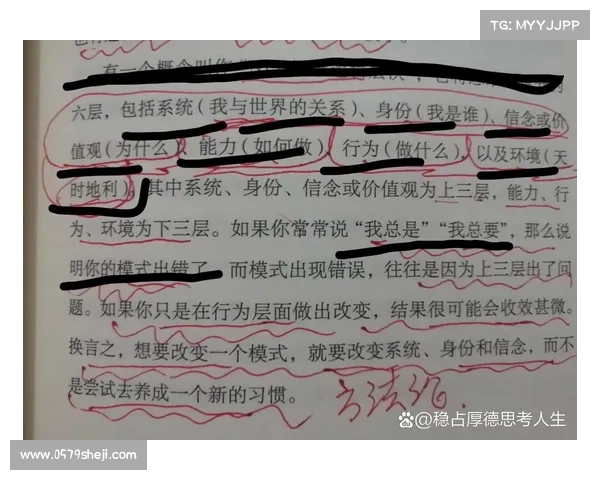 TG: MYYJJPP
有一个概念叫
六层，包括系统（我与世界的关系）、身份（我是谁）、信念或价
值观（为什么）、能力（如何做）、行为（做什么），以及环境（天
时地利）。其中系统、身份、信念或价值观为上三层，能力、行
为、环境为下三层。如果你常常说“我总是”“我总要”，那么说
明你的模式出错了。而模式出现错误，往往是因为上三层出了问
题。如果你只是在行为层面做出改变，结果很可能会收效甚微。
换言之，想要改变一个模式，就要改变系统、身份和信念，而不
是尝试去养成一个新的习惯。
方法论.
@稳占厚德思考人生
www.0579sheji.com